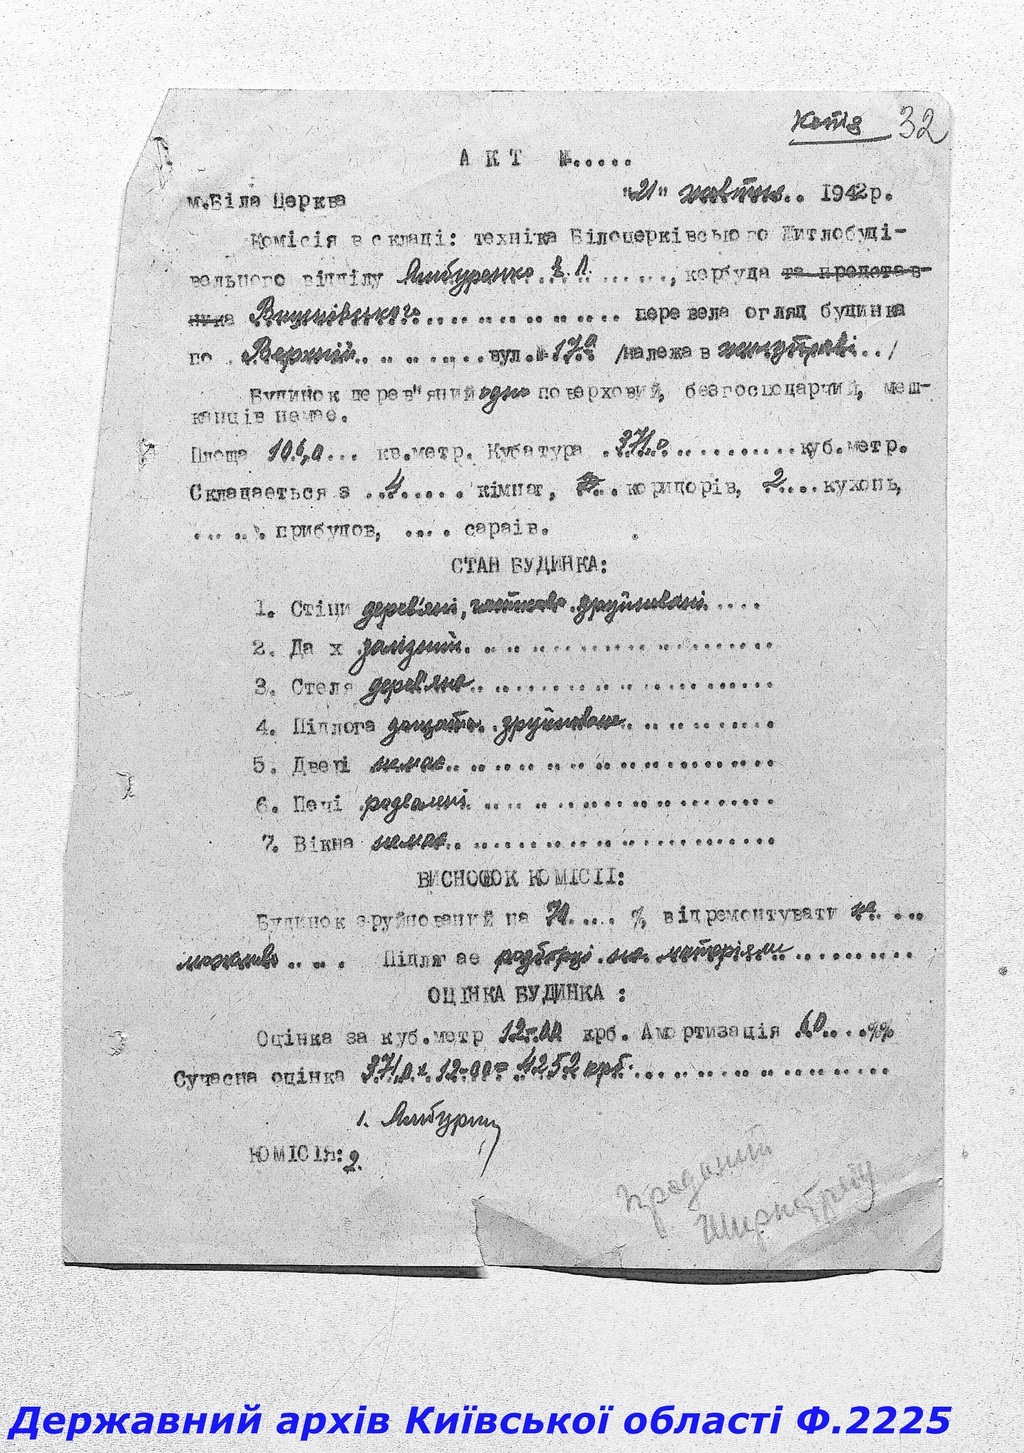 Копія 32
А К Т №.....
м.Біла Церква "21" жовтня.. 1942 р.
Комісія в складі: техніка Білоцерківського Житлобуді-
вельного відділу Амбуренко ......, кербуда та представ-
ника Вишнівського .......... перевела огляд будинка
по .Верхній......... вул.№ 17а /належав жилуправі../
Будинок дерев"яний одно поверховий, безгосподарчий, меш-
канців немає.
Площа 106,0... кв.метр. Кубатура .371,0............куб.метр.
Складається з ..4..... кімнат, ... коридорів, 2....кухонь,
...... прибудов, .... сараів.
СТАН БУДИНКА:
1. Стіни дерев'яні, частково зруйновані....
2. Дах залізний....................
3. Стеля дерев'яна....................
4. Підлога дощата. зруйнована............
5. Двері немає....................
6. Печі розвалені....................
7. Вікна немає....................
ВИСНОВОК КОМІСІІ:
Будинок зруйнований на 70.... % відремонтувати не....
можливо.... Підлягає розборці на матеріяли..........
ОЦІНКА БУДИНКА :
Оцінка за куб.метр 12-00 крб. Амортизація 60....%%
Сучасна оцінка 371,0 х 12-00= 4252 крб...............
1. Амбурен
КОМІСІЯ: 2.
Проданий
Державний архів Київської області Ф.2225